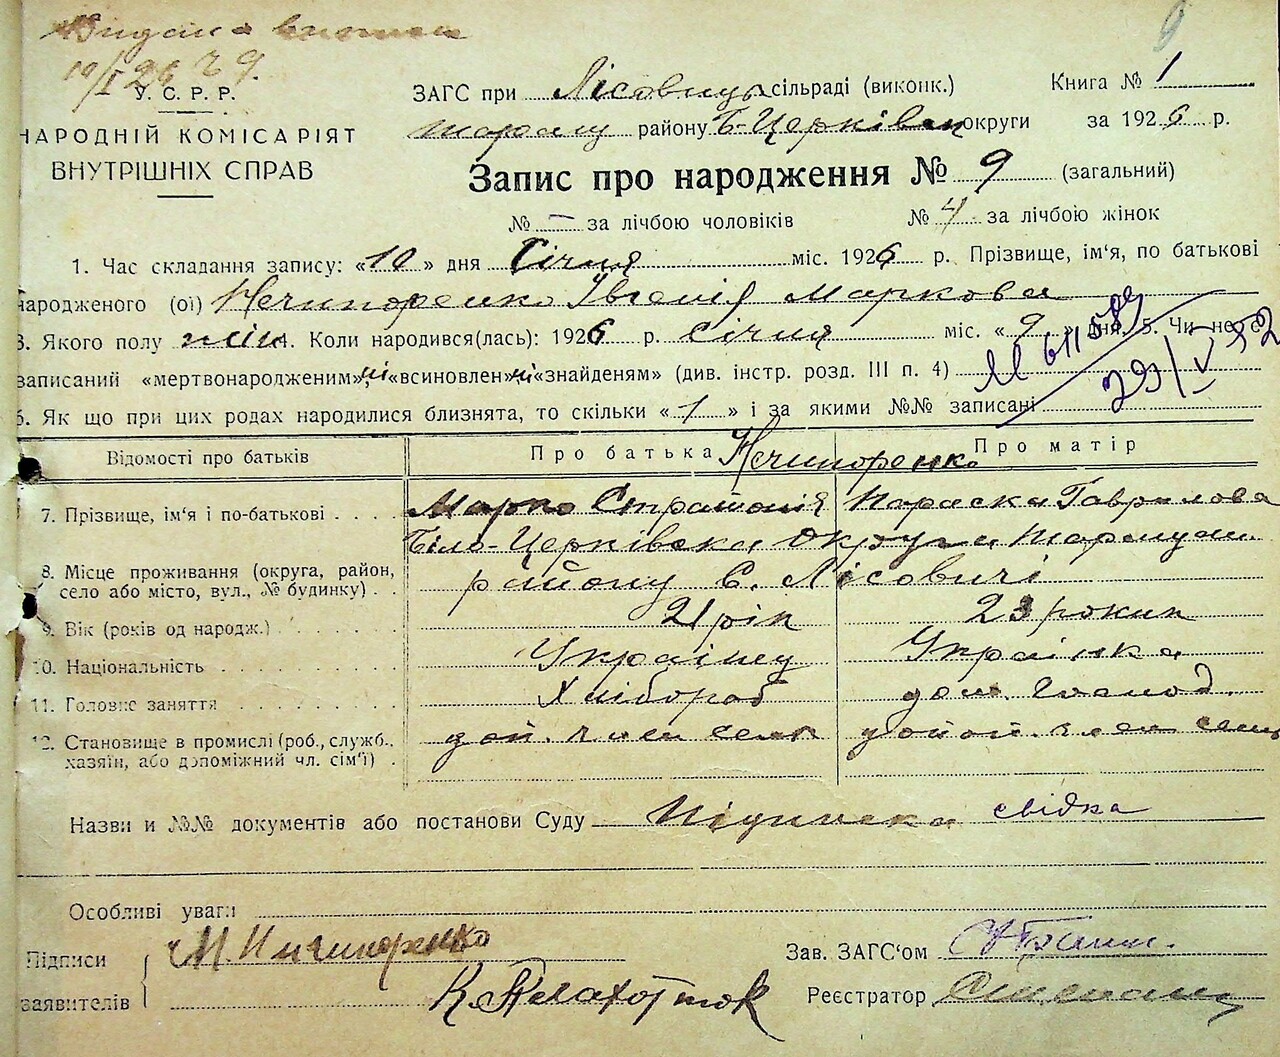 Видана виписка
19/I 26 29.
У.С.Р.Р.
НАРОДНІЙ КОМІСАРІЯТ
ВНУТРІШНІХ СПРАВ
ЗАГС при Лісовиц. сільраді (виконк.) Книга № 1
таращ району Б-Церківск округи за 1926 р.
Запис про народження № 9 (загальний)
№ — за лічбою чоловіків № 4 за лічбою жінок
1. Час складання запису: «10» дня Січня міс. 1926 р. Прізвище, ім'я, по батькові
народженого (ої) Нечипоренко Івгенія Маркова
3. Якого полу жін 4. Коли народився(лась): 1926 р. січня міс. «9» дня. 5. Чи не є
записаний «мертвонародженим», ні «всиновлен» ні «знайденям» (див. інстр. розд. III п. 4)
29/V 52
6. Як що при цих родах народилися близнята, то скільки «1» і за якими №№ записані
Відомості про батьків Про батька Про матір
Нечипоренко
7. Прізвище, ім'я і по-батькові Марко Страйонів Параска Гаврилова
Біло-Церківска Округа Таращан.
8. Місце проживання (округа, район, село або місто, вул., № будинку) району С. Лісовичі
9. Вік (років од народж.) 21 рік 23 роки
10. Національність Українец Українка
11. Головне заняття Хлібороб дом. господ.
12. Становище в промислі (роб., служб., хазяїн, або допоміжний чл. сім'ї) доп. член семї допом. член семї
Назви и №№ документів або постанови Суду Підписка свідка
Особливі уваги
Підписи заявителів М. Ничипоренко
Зав. ЗАГС'ом
Реєстратор